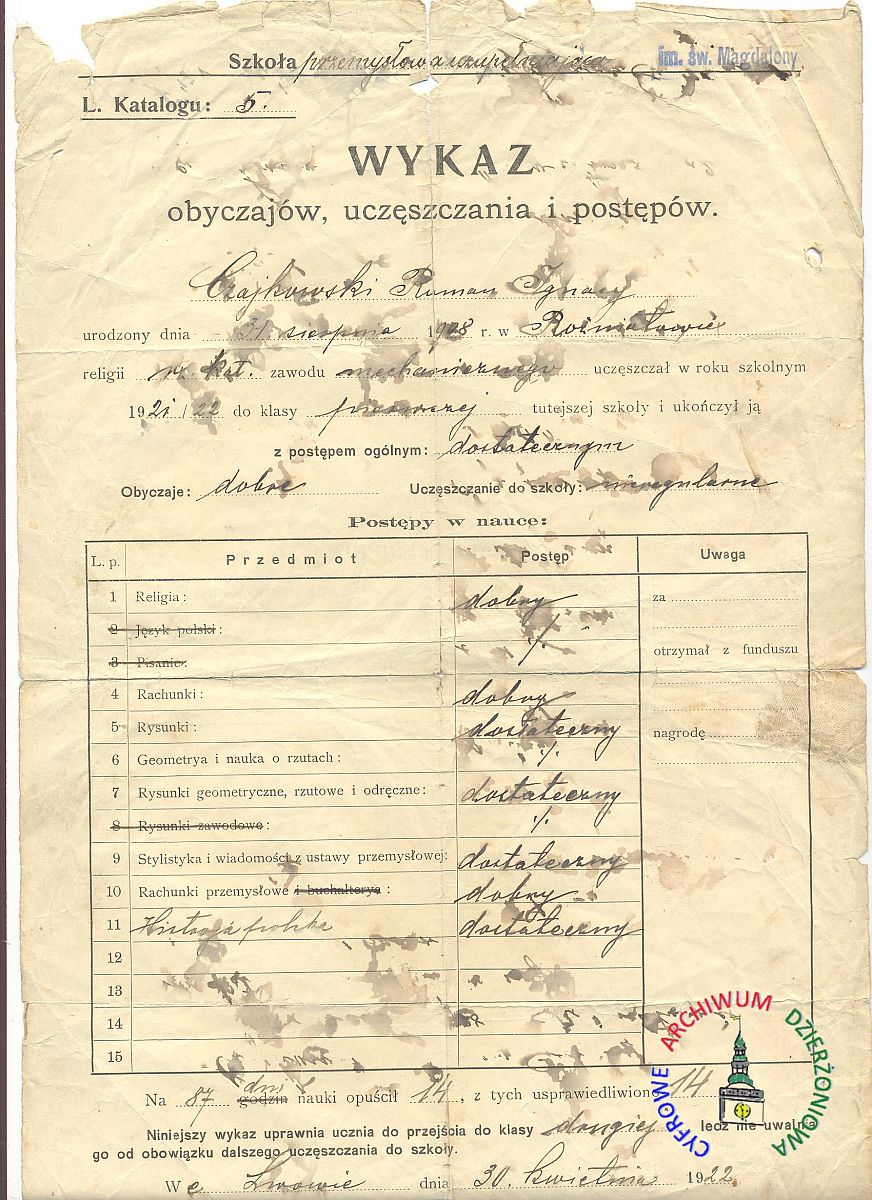 Szkoła przemysłowa uzupełniająca im. św. Magdaleny
L. Katalogu: 5.
WYKAZ
obyczajów, uczęszczania i postępów.
Czajkowski Roman Ignacy
urodzony dnia 31 sierpnia 1908 r. w
religii rz. kat. zawodu mechanicznego uczęszczał w roku szkolnym
1921/22 do klasy pierwszej tutejszej szkoly i ukończył ją
z postępem ogólnym: dostatecznym
Obyczaje: dobre Uczęszczanie do szkoły: nieregularne
Postępy w nauce:
L. p. Przedmiot Postęp Uwaga
1 Religia: dobry za
2 Język polski: ./.
3 Pisanie: otrzymał z funduszu
4 Rachunki: dobry
5 Rysunki: dostateczny nagrodę
6 Geometrya i nauka o rzutach: ./.
7 Rysunki geometryczne, rzutowe i odręczne: dostateczny
8 Rysunki zawodowe: ./.
9 Stylistyka i wiadomości z ustawy przemysłowej: dostateczny
10 Rachunki przemysłowe i buchalterya: dobry
11 Historja polska dostateczny
12
13
14
15
Na 87 dni godzin nauki opuścił 14, z tych usprawiedliwiono 14
Niniejszy wykaz uprawnia ucznia do przejścia do klasy drugiej lecz nie uwalnia
go od obowiązku dalszego uczęszczania do szkoły.
We Lwowie dnia 30. kwietnia 1922.
CYFROWE ARCHIWUM DZIERŻONIOWA